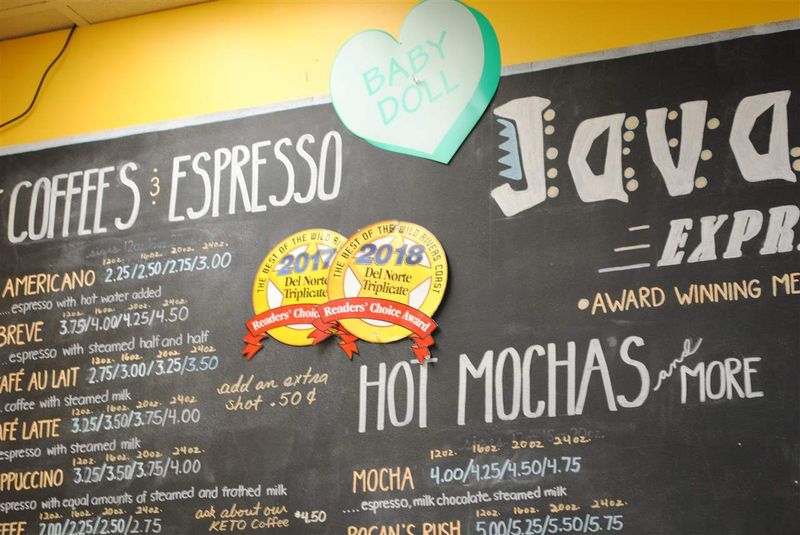 BABY
DOLL
COFFEES & ESPRESSO
12oz. 16oz. 20oz. 24oz.
AMERICANO 2.25/2.50/2.75/3.00
....espresso with hot water added
12oz. 16oz. 20oz. 24oz.
BREVE 3.75/4.00/4.25/4.50
....espresso with steamed half and half
12oz. 16oz. 20oz. 24oz.
CAFÉ AU LAIT 2.75/3.00/3.25/3.50
..coffee with steamed milk
12oz. 16oz. 20oz. 24oz.
AFÉ LATTE 3.25/3.50/3.75/4.00
espresso with steamed milk
12oz. 16oz. 20oz. 24oz.
PPUCCINO 3.25/3.50/3.75/4.00
espresso with equal amounts of steamed and frothed milk
12oz. 16oz. 20oz. 24oz.
FFEE 2.00/2.25/2.50/2.75
add an extra
shot .50¢
ask about our
KETO Coffee $4.50
THE BEST OF THE WILD RI
2017
Del Norte
Triplicate
Readers' Choic
THE BEST OF THE WILD RIVERS COAST
2018
Del Norte
Triplicate
Readers' Choice Award
Java
EXPR
•AWARD WINNING ME
HOT MOCHAS and MORE
12oz. 16oz. 20oz. 24oz.
MOCHA 4.00/4.25/4.50/4.75
....espresso, milk chocolate, steamed milk
12oz. 16oz. 20oz. 24oz.
ROGAN'S RUSH 5.00/5.25/5.50/5.75